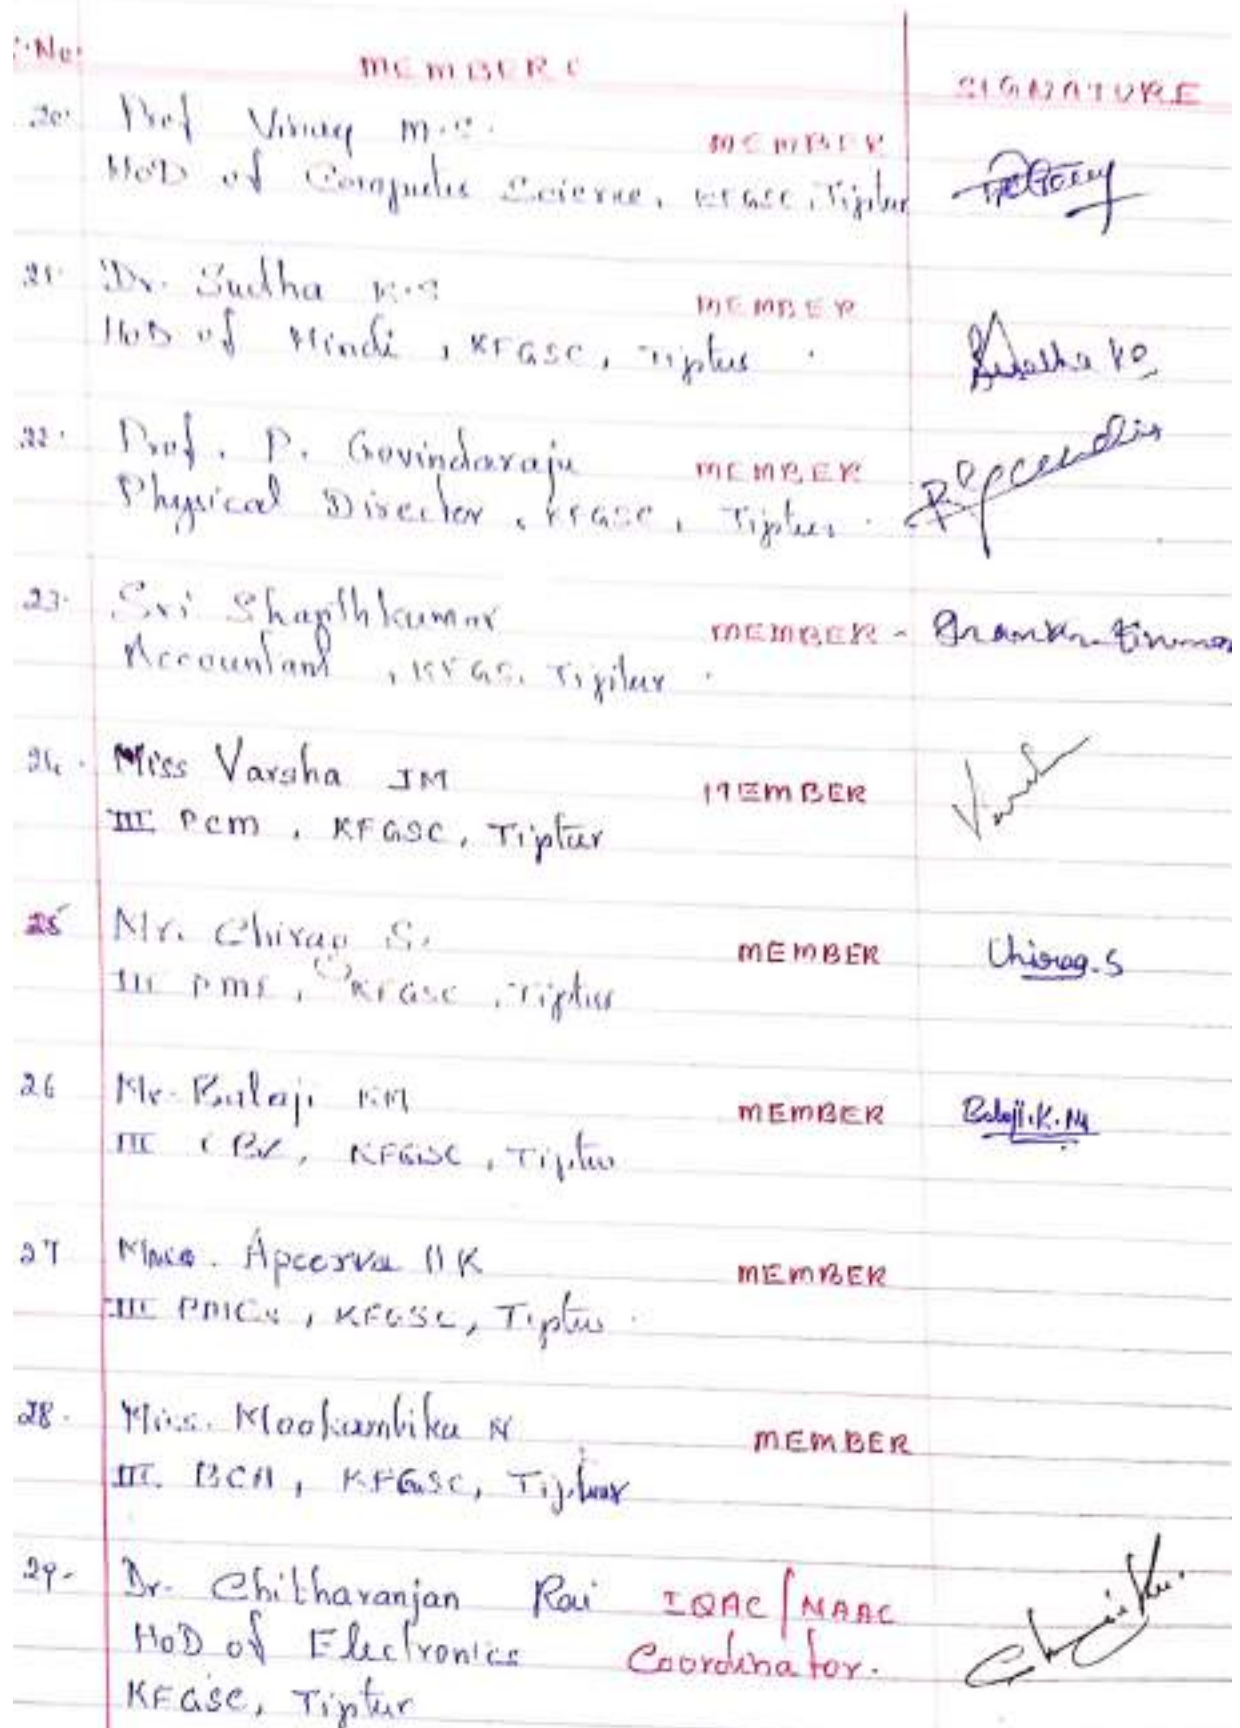 No. MEMBERS SIGNATURE
20. Prof Vinay M.S. MEMBER
HoD of Computer Science, KFGSC, Tiptur
21. Dr. Sudha K.S MEMBER
HoD of Hindi, KFGSC, Tiptur. Sudha KS
22. Prof. P. Govindaraju MEMBER
Physical Director, KFGSC, Tiptur.
23. Sri Shanthkumar MEMBER -
Accountant, KFGS, Tiptur.
24. Miss Varsha JM MEMBER
III PCM, KFGSC, Tiptur
25 Mr. Chirag S. MEMBER Chirag.S
III PME, KFGSC, Tiptur
26 Mr. Balaji KM MEMBER Balaji.K.M
III CBZ, KFGSC, Tiptur
27 Apoorva HK MEMBER
III PMCs, KFGSC, Tiptur.
28. Miss. Mookambika N MEMBER
III. BCA, KFGSC, Tiptur
29. Dr. Chitharanjan Rai IQAC/NAAC
HoD of Electronics Coordinator.
KFGSC, Tiptur